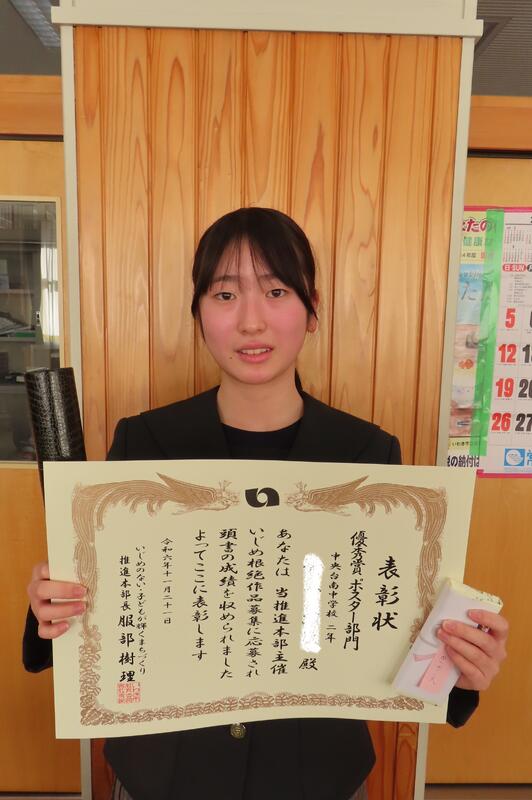 表彰状
優秀賞 ポスター部門
中央台南中学校 二年
殿
あなたは 当推進本部主催
いじめ根絶作品募集に応募され
頭書の成績を収められました
よってここに表彰します
令和六年十一月二十一日
いじめのない子どもが輝くまちづくり
推進本部長 服部樹理
日 SUN
5
12
19
20
26
27
の納付は